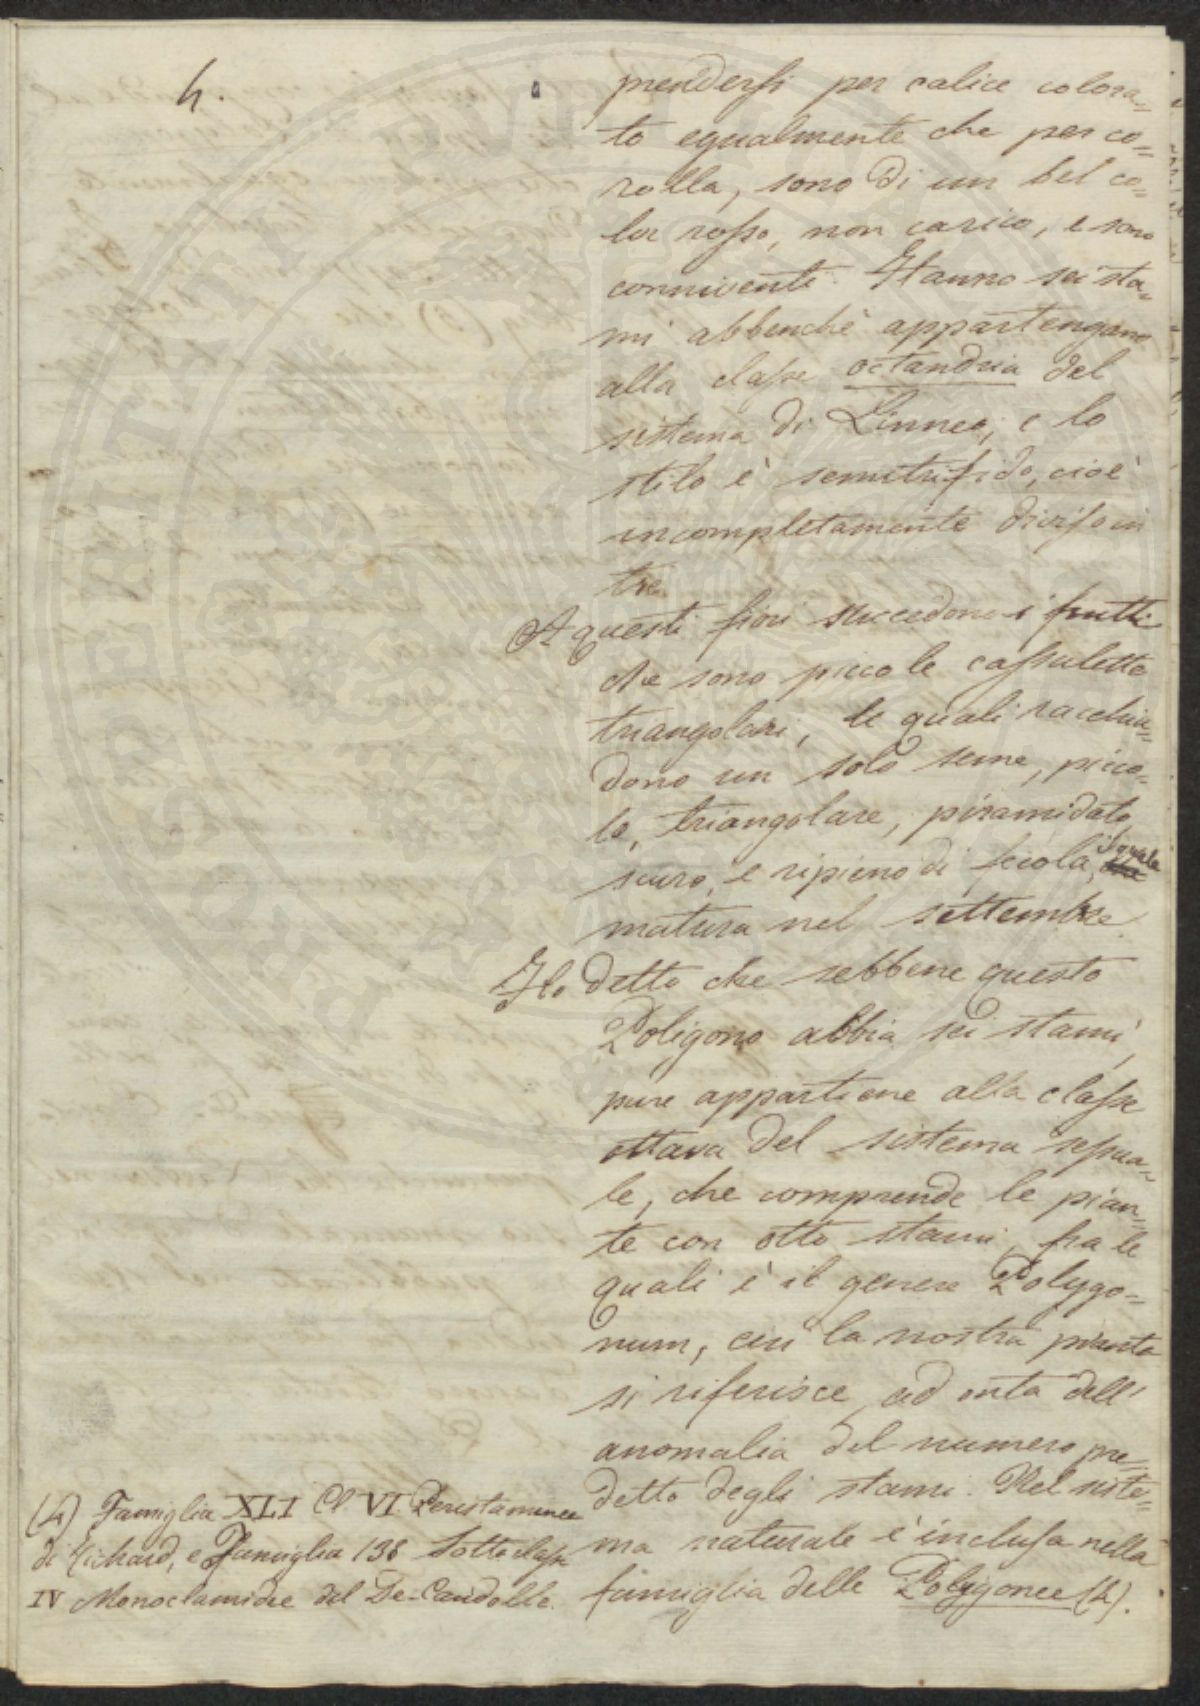 4.
prendersi per calice colora=
to egualmente che per co=
rolla, sono di un bel co=
lor rosso, non carico, e sono
conniventi. Hanno sei sta=
mi abbenchè appartengano
alla classe octandria del
sistema di Linneo, e lo
stilo è semitrifido, cioè
incompletamente diviso in
tre.
A questi fiori succedono i frutti
che sono piccole cassulette
triangolari, le quali racchiu=
dono un solo seme, picco=
lo, triangolare, piramidato,
scuro, e ripieno di feciola, il quale
matura nel settembre.
Ho detto che sebbene questo
Poligono abbia sei stami,
pure appartiene alla classe
ottava del sistema sessua=
le, che comprende le pian=
te con otto stami, fra le
quali è il genere Polygo=
num, cui la nostra pianta
si riferisce, ad onta dell'
anomalia del numero pre=
detto degli stami. Nel siste=
ma naturale è inclusa nella
famiglia delle Poligonee (4).
(4) Famiglia XLI Cl. VI. Peristaminee
di Richard, e Famiglia 138 Sottoclasse
IV Monoclamidee del De-Candolle.
PROPERTIT